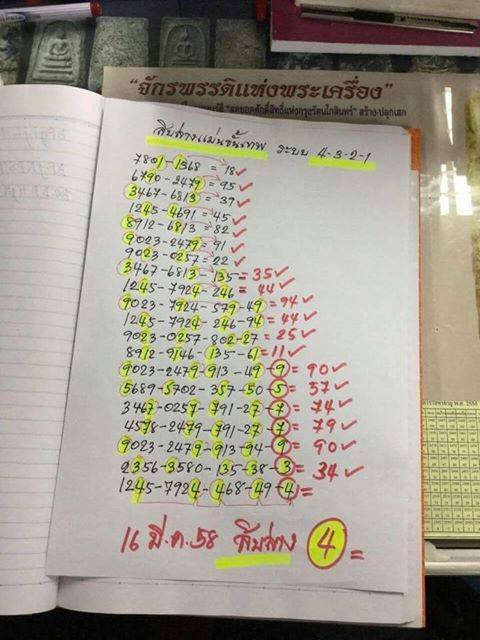 "จักรพรรดิแห่งพระเครื่อง"
"สุดยอดศักดิ์สิทธิ์แห่งกรุงรัตนโกสินทร์" สร้าง-ปลุกเสก
สิบล่างแม่นขั้นเทพ ระบบ 4-3-2-1
7801-1368 = 18 ✓
6790-2479 = 95 ✓
3467-6813 = 37 ✓
1245-4691 = 45 ✓
8912-6813 = 82 ✓
9023-2479 = 91 ✓
9023-0257 = 22 ✓
3467-6813-135 = 35 ✓
1245-7924-246 = 44 ✓
9023-7924-579-49 = 94 ✓
1245-7924-246-94 = 44 ✓
9023-0257-802-27 = 25 ✓
8912-9146-135-61 = 11 ✓
9023-2479-913-49-9 = 90 ✓
5689-5702-357-50-5 = 57 ✓
3467-0257-791-27-7 = 74 ✓
4578-2479-791-27-7 = 79 ✓
9023-2479-913-94-9 = 90 ✓
2356-3580-135-38-3 = 34 ✓
1245-7924-468-49-4 =
16 มี.ค.58 สิบล่าง 4 =